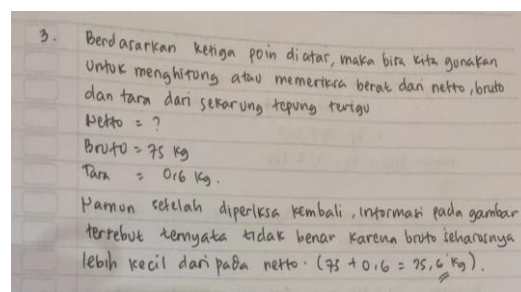 3. Berdasarkan ketiga poin diatas, maka bisa kita gunakan
untuk menghitung atau memeriksa berat dari netto, bruto
dan tara dari sekarung tepung terigu
Netto = ?
Bruto = 75 kg
Tara = 0,6 kg.
Namun setelah diperiksa kembali, informasi pada gambar
tersebut ternyata tidak benar karena bruto seharusnya
lebih kecil dari pada netto. (75 + 0,6 = 75,6 kg).